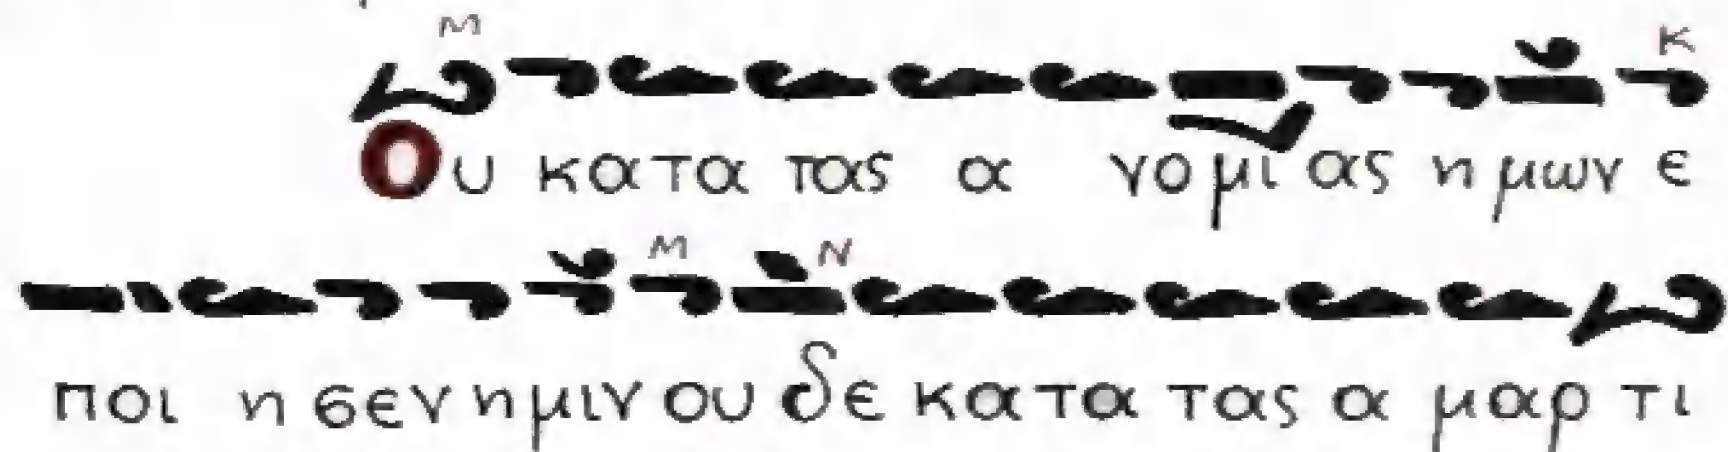 Μ Κ
Ου κατα τας α νομιας ημων ε
Μ Ν
ποι ησεν ημιν ου δε κατα τας α μαρ τι